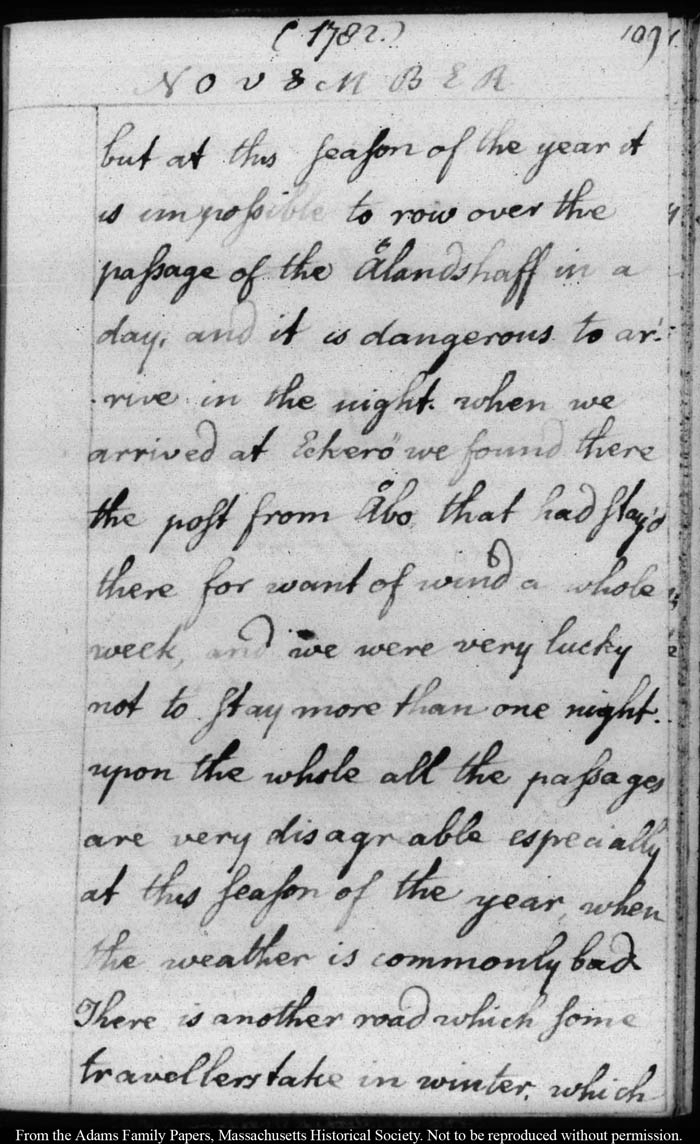 (1782.) 109
NOVEMBER
but at this ſeaſon of the year it
is impoſsible to row over the
paſsage of the Ålandshaff in a
day, and it is dangerous to ar-
rive in the night. when we
arrived at Eckerö we found there
the poſt from Åbo that had ſtay'd
there for want of wind a whole
week, and we were very lucky
not to ſtay more than one night.
upon the whole all the paſsages
are very disagreable especially
at this ſeaſon of the year, when
the weather is commonly bad.
There is another road which ſome
travellers take in winter. which
From the Adams Family Papers, Massachusetts Historical Society. Not to be reproduced without permission.